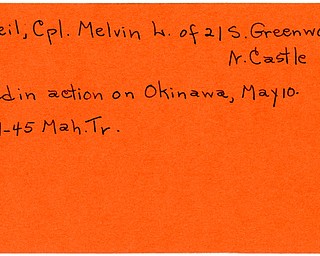 eil, Cpl. Melvin L. of 21 S. Greenwo
N. Castle
d in action on Okinawa, May 10.
-45 Mah. Tr.